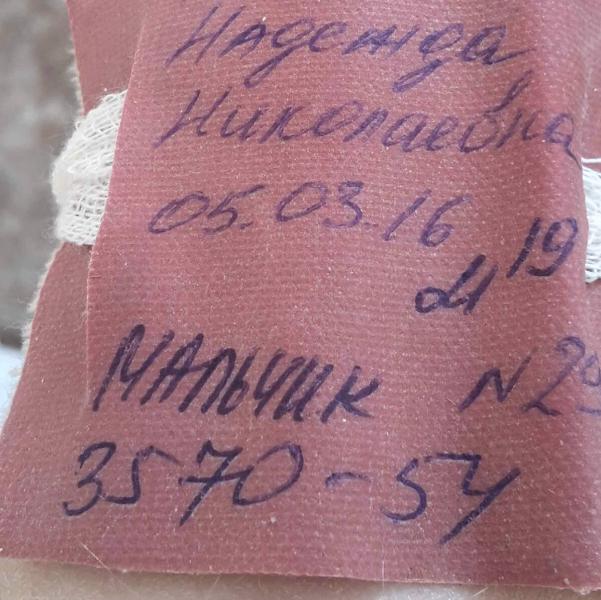 Надежда
Николаевна
05.03.16
19
Мальчик N29
3570-54